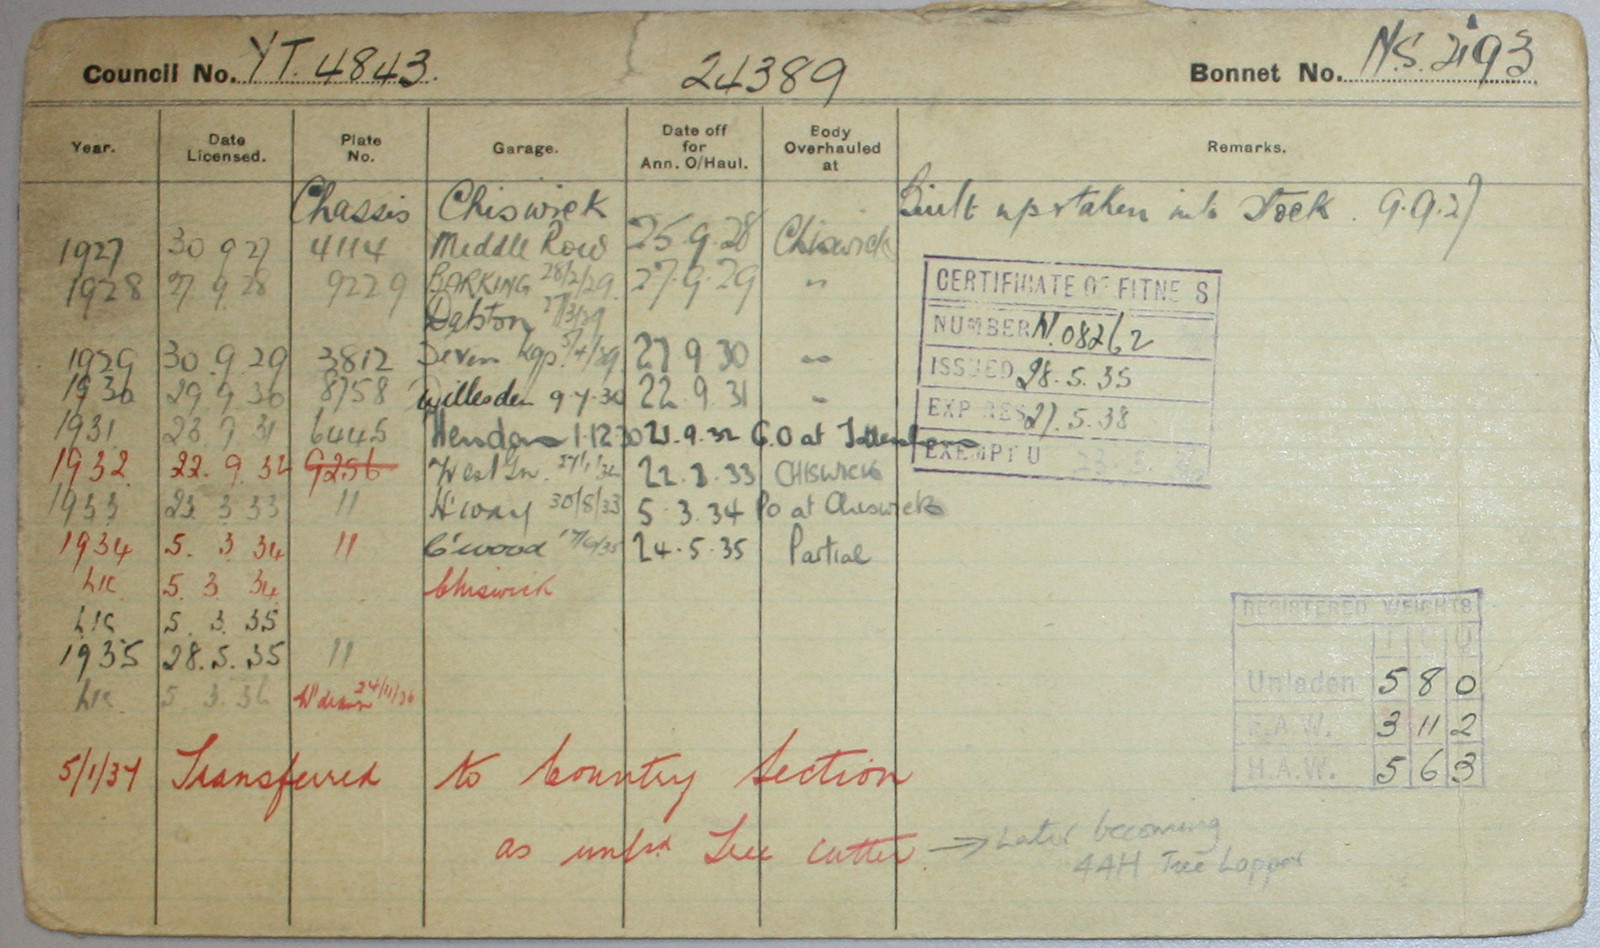 Council No. YT. 4843. 24389 Bonnet No. N.S. 2193
Year. Date Licensed. Plate No. Garage. Date off for Ann. O/Haul. Body Overhauled at Remarks.
Chassis Chiswick Built up & taken into Stock. 9.9.27
1927 30 9 27 4114 Middle Row 25.9.28 Chiswick
1928 27 9 28 9229 BARKING 28/2/29 27.9.29 "
Dalston 27/3/29
1929 30.9.29 3812 Seven Kgs. 5/4/29 27 9 30 "
1930 29 9 30 8758 Willesden 9.7.30 22.9.31 "
1931 23 9 31 6445 Hendon 1.12.30 21.9.32 G.O at Tottenham
1932 22.9.32 9256 West Gn. 22.3.33 CHISWICK
1933 23 3 33 " H'way 30/8/33 5.3.34 PO at Chiswick
1934 5. 3 34 " C'wood 24.5.35 Partial
Lic 5. 3. 34 Chiswick
Lic 5. 3. 35
1935 28.5.35 "
Lic 5 3.36 24/11/36
5/1/37 Transferred to Country Section
as Tree Cutter → Later becoming
44H Tree Lopper
CERTIFICATE OF FITNESS
NUMBER N.08262
ISSUED 28.5.35
EXPIRES 27.5.38
EXEMPT U
REGISTERED WEIGHTS
T C Q
Unladen 5 8 0
F.A.W. 3 11 2
H.A.W. 5 6 3